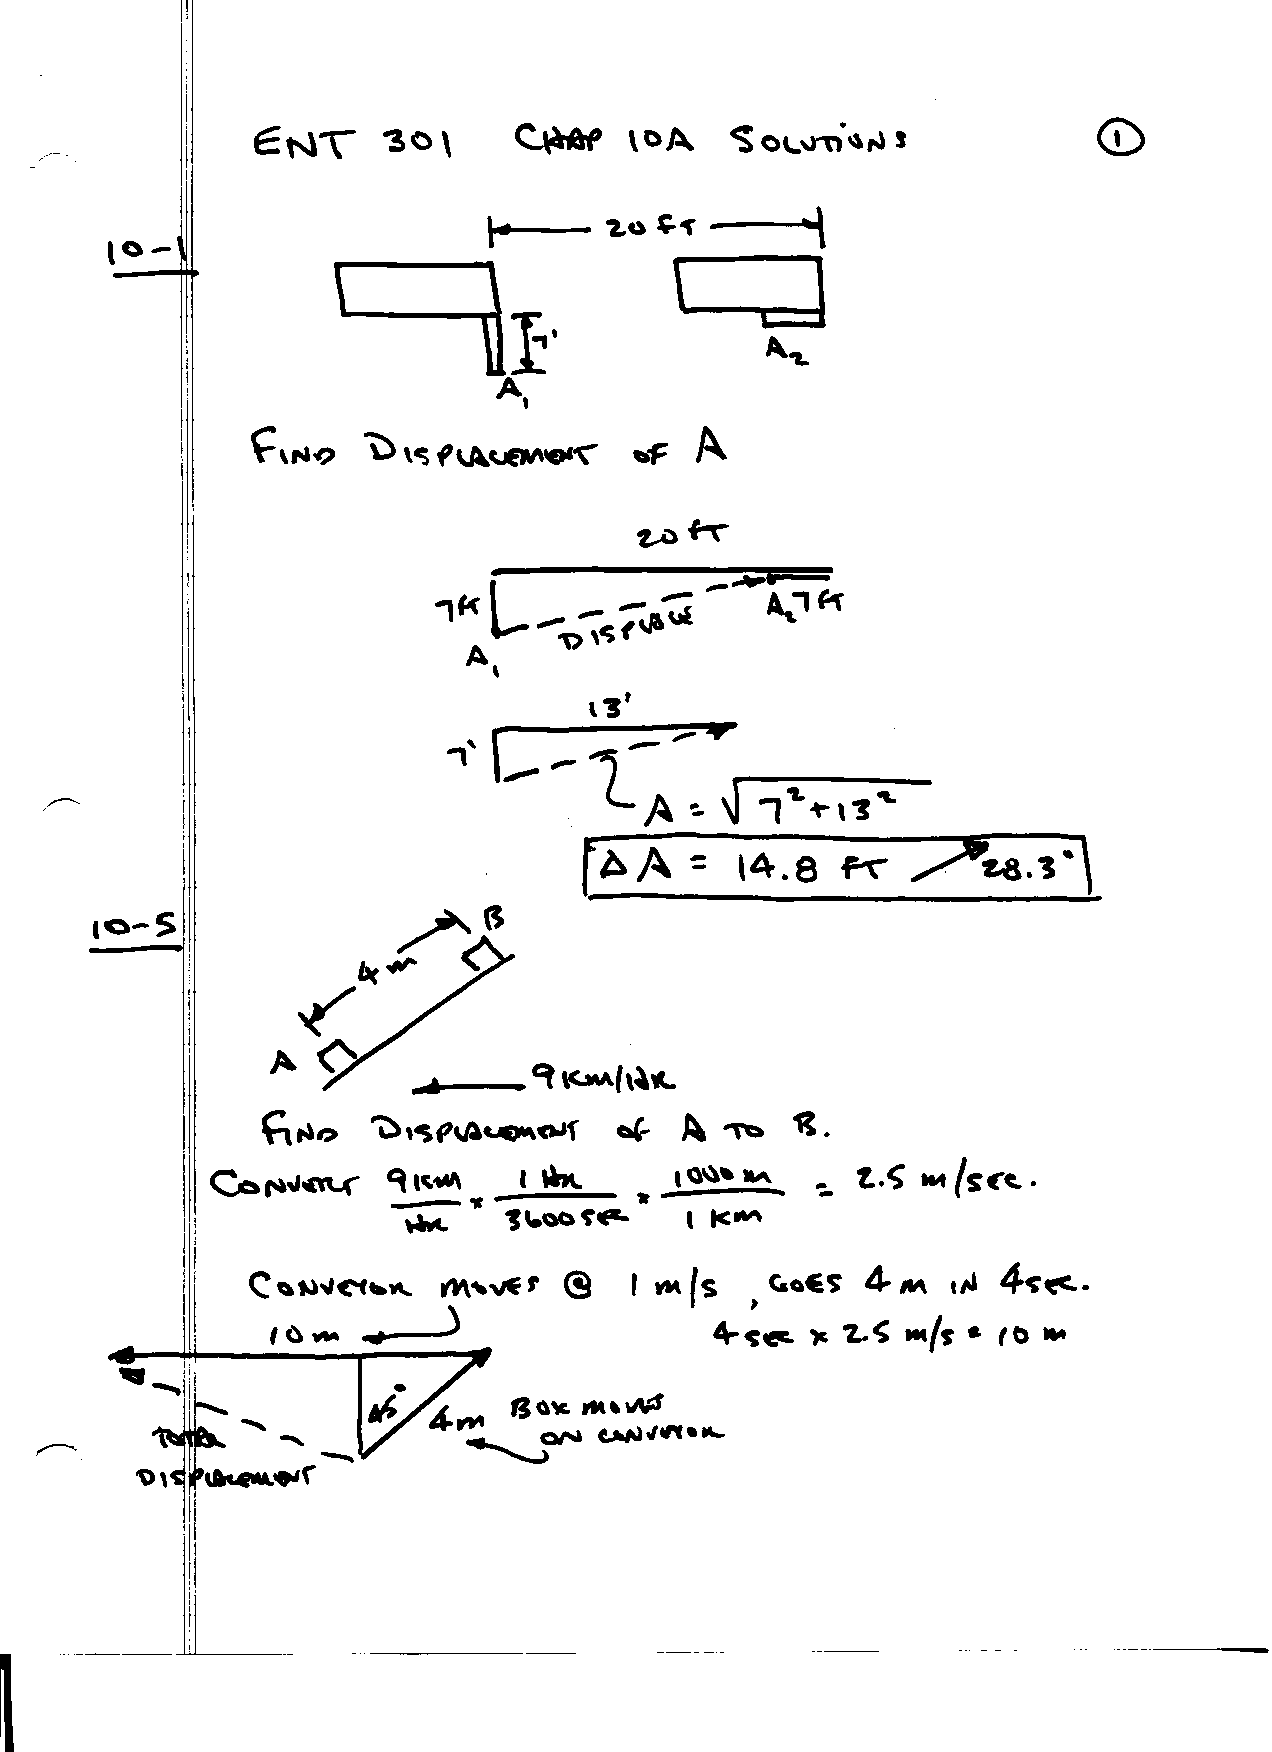 ENT 301 CHAP 10A SOLUTIONS 1
10-1
20 FT
7'
A1
A2
FIND DISPLACEMENT OF A
20 FT
7 FT
A1
DISPLACE
A2 7 FT
13'
7'
A = √7²+13²
ΔA = 14.8 FT 28.3°
10-5
B
4 m
A
9 KM/HR
FIND DISPLACEMENT OF A TO B.
CONVERT 9KM/HR × 1 HR/3600 SEC × 1000 M/1 KM = 2.5 m/sec.
CONVEYOR MOVES @ 1 m/s, GOES 4 m IN 4 sec.
10 m
4 sec × 2.5 m/s = 10 m
45°
4m BOX MOVES
ON CONVEYOR
TOTAL
DISPLACEMENT